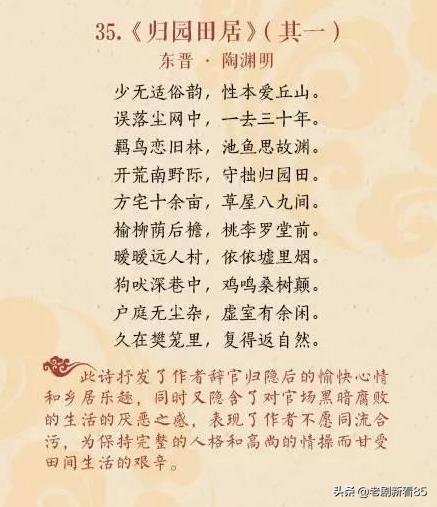 35.《归园田居》(其一)
东晋 · 陶渊明
少无适俗韵，性本爱丘山。
误落尘网中，一去三十年。
羁鸟恋旧林，池鱼思故渊。
开荒南野际，守拙归园田。
方宅十余亩，草屋八九间。
榆柳荫后檐，桃李罗堂前。
暧暧远人村，依依墟里烟。
狗吠深巷中，鸡鸣桑树颠。
户庭无尘杂，虚室有余闲。
久在樊笼里，复得返自然。
此诗抒发了作者辞官归隐后的愉快心情
和乡居乐趣，同时又隐含了对官场黑暗腐败
的生活的厌恶之感，表现了作者不愿同流合
污，为保持完整的人格和高尚的情操而甘受
田间生活的艰辛。
头条 @老剧新看85